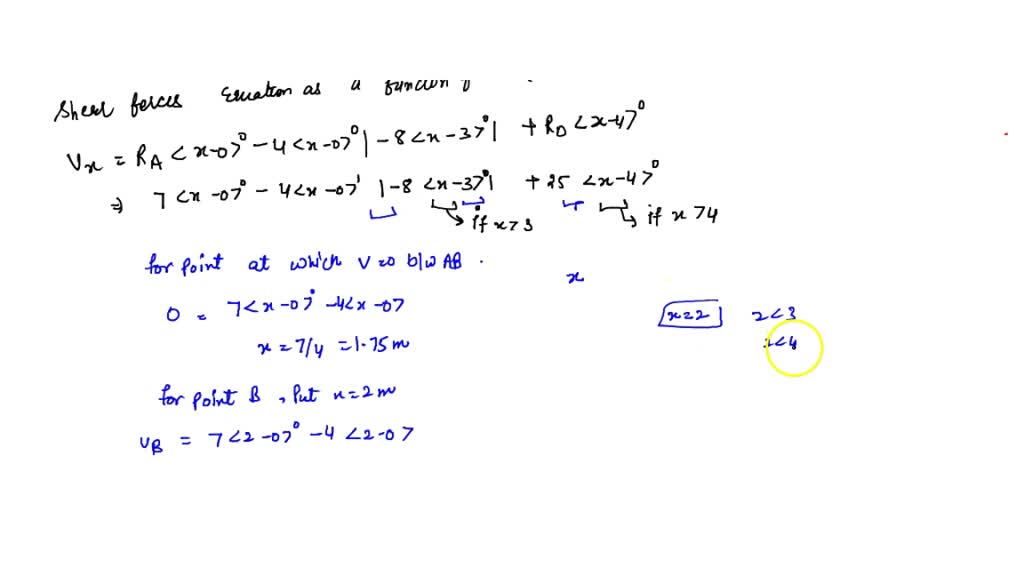 Shear forces Equation as a function of
Vx = RA <x-0>⁰ - 4<x-0>⁰ | - 8<x-3>⁰ | + RD <x-4>⁰
⇒ 7 <x-0>⁰ - 4<x-0>¹ | -8 <x-3>⁰ | + 25 <x-4>⁰
if x>3
if x>4
for point at which V=0 b/w AB.
x
0 = 7<x-0>⁰ - 4<x-0>
x=2 2<3
x = 7/4 = 1.75m
2<4
for point B, Put x=2m
VB = 7<2-0>⁰ - 4 <2-0>